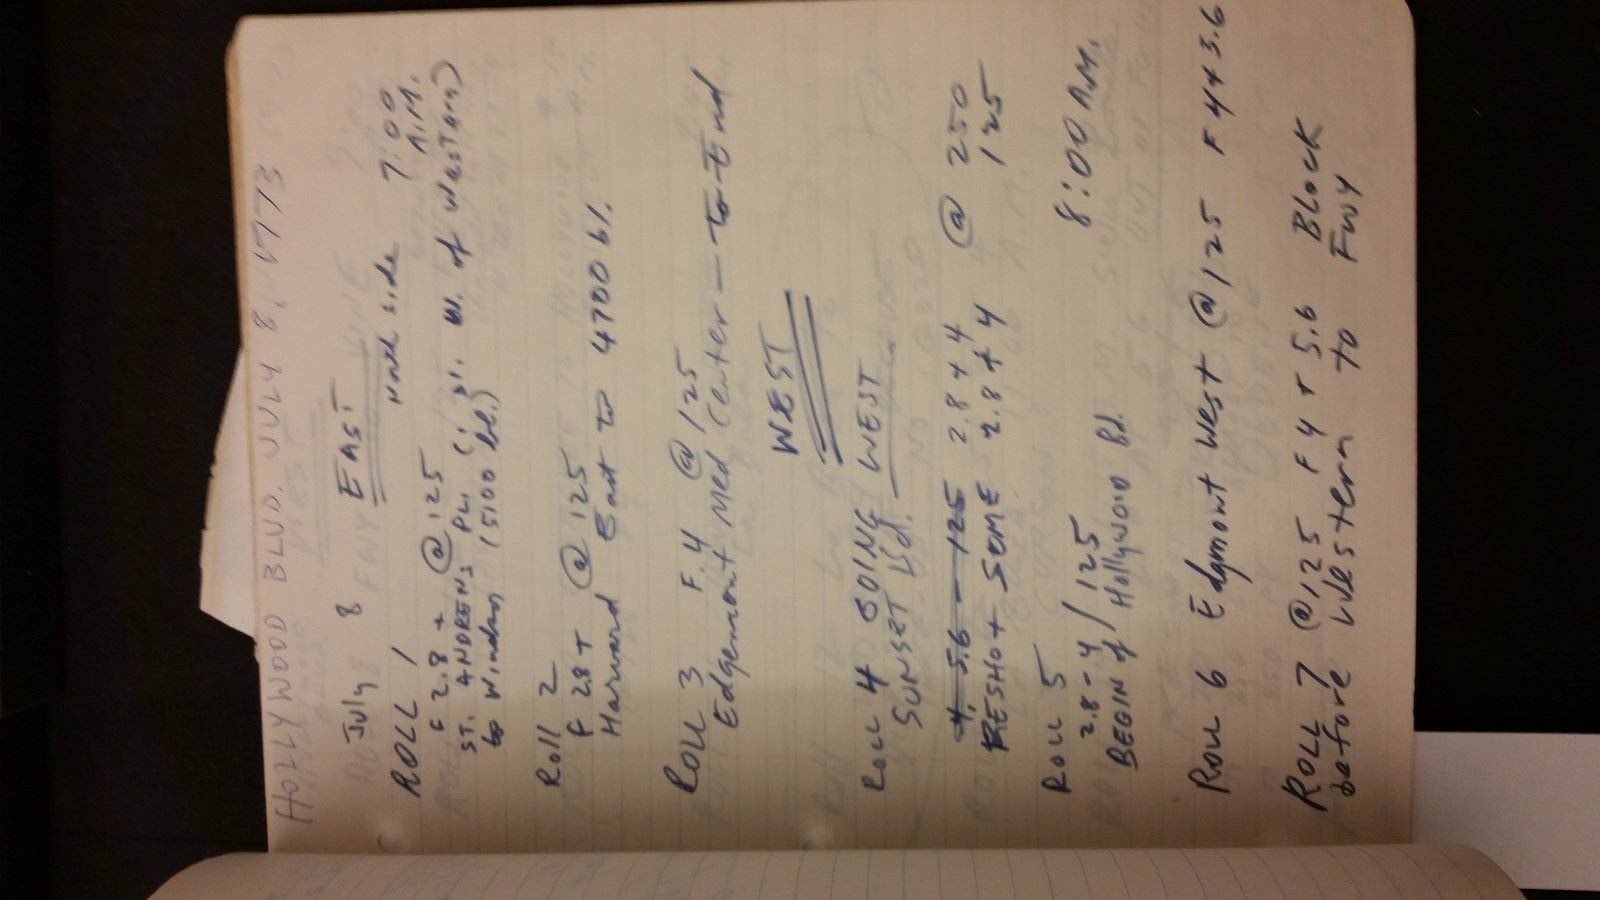 HOLLYWOOD BLVD. JULY 8, 1973
July 8 EAST
ROLL 1 North side 7:00 A.M.
F 2.8 + @ 125
ST. ANDREWS PL. (1 st. W. of Western)
to Windsor (5100 bl.)
Roll 2
F 2.8 + @ 125
Harvard East to 4700 bl.
ROLL 3 F.4 @ 125
Edgemont Med Center — to End
WEST
ROLL 4 GOING WEST
SUNSET bd.
4. 5.6 — 125 2.8 + 4 @ 250
RESHOT SOME 2.8 + 4 125
ROLL 5 8:00 A.M.
2.8 - 4 / 125
BEGIN of Hollywood Bd.
ROLL 6 Edgmont West @ 125 F 4+5.6
ROLL 7 @ 125 F 4 + 5.6 BLOCK
before Western to Fwy